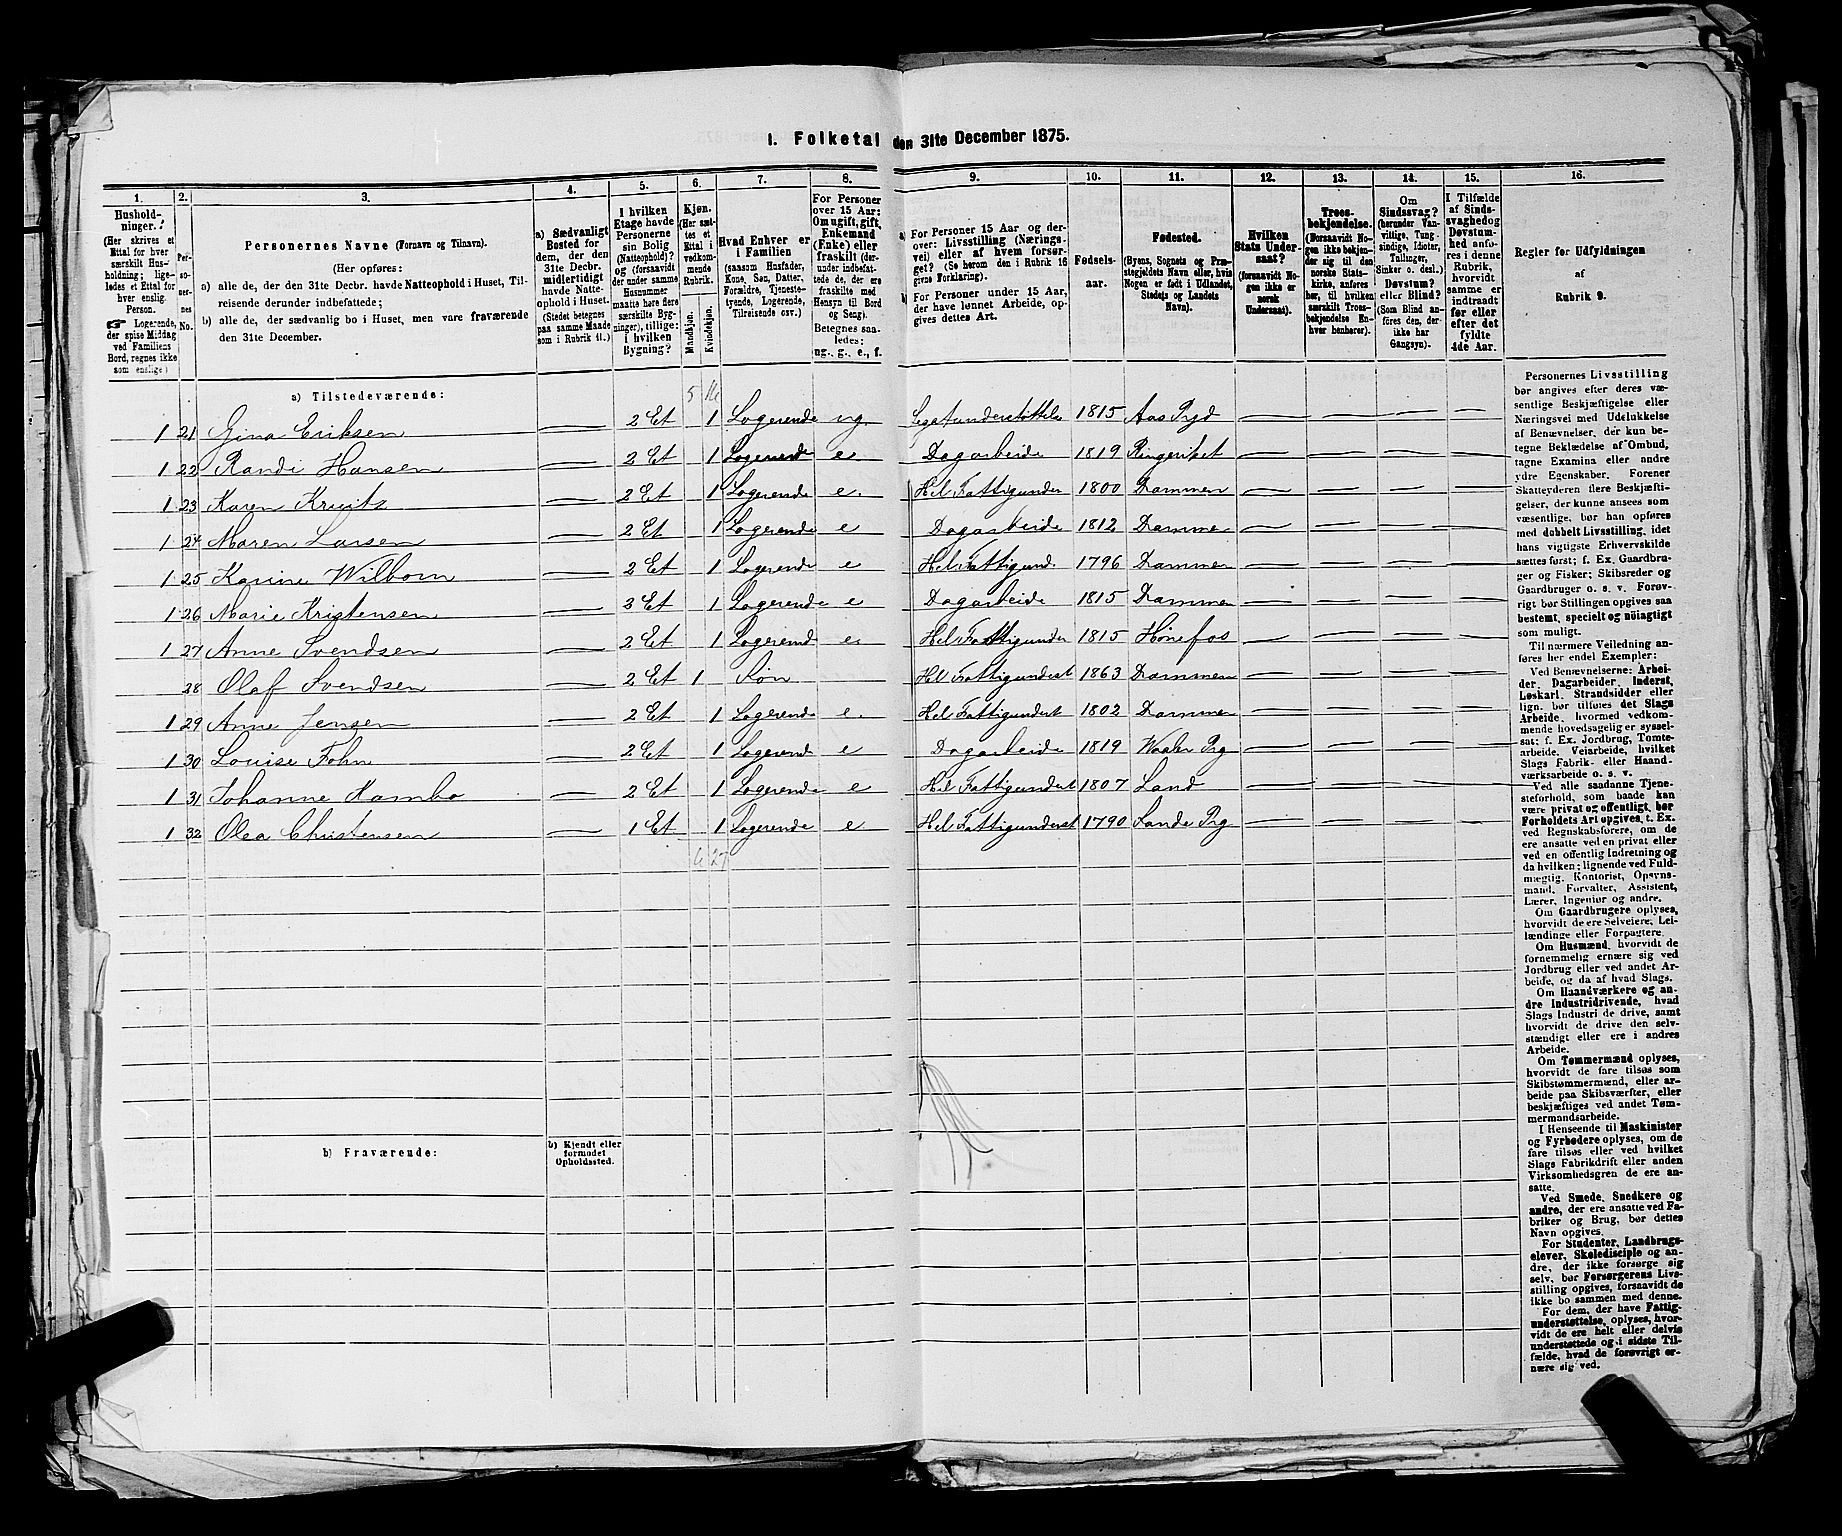 I. Folketal den 31te December 1875.
1. 2. 3. 4. 5. 6. 7. 8. 9. 10. 11. 12. 13. 14. 15. 16.
Hushold-
ninger.
(Her skrives et
Ettal for hver
særskilt Hus-
holdning; lige-
ledes et Ettal for
hver enslig
Person.
☞ Logerende,
der spise Middag
ved Familiens
Bord, regnes ikke
som enslige)
Per-
so-
ner-
nes
No.
Personernes Navne (Fornavn og Tilnavn).
(Her opføres:
a) alle de, der den 31te Decbr. havde Natteophold i Huset, Til-
reisende derunder indbefattede;
b) alle de, der sædvanlig bo i Huset, men vare fraværende
den 31te December.
a) Sædvanligt
Bosted for
dem, der den
31te Decbr.
midlertidigt
havde Natte-
ophold i Huset.
(Stedet betegnes
paa samme Maade
som i Rubrik 11.)
I hvilken
Etage havde
Personerne
sin Bolig
(Natteophold)?
og (forsaavidt
der under samme
Husnummer
maatte høre flere
særskilte Byg-
ninger), tillige:
i hvilken
Bygning?
Kjøn.
(Her sæt-
tes et
Ettal i
vedkom-
mende
Rubrik.
Mandkjøn.
Kvindekjøn.
Hvad Enhver er
i Familien
(saasom Husfader,
Kone, Søn, Datter,
Forældre, Tjeneste-
tyende, Logerende,
Tilreisende osv.)
For Personer
over 15 Aar:
Om ugift, gift,
Enkemand
(Enke) eller
fraskilt (der-
under indbefat-
tede de, der ere
fraskilte med
Hensyn til Bord
og Seng).
Betegnes saa-
ledes:
ug., g., e., f.
a) For Personer 15 Aar og der-
over: Livsstilling (Nærings-
vei) eller af hvem forsør-
get? (Se herom den i Rubrik 16
givne Forklaring).
b) For Personer under 15 Aar,
der have lønnet Arbeide, op-
gives dettes Art.
Fødsels-
aar.
Fødested.
(Byens, Sognets og Præ-
stegjeldets Navn eller, hvis
Nogen er født i Udlandet,
Stedets og Landets
Navn).
Hvilken
Stats Under-
saat?
(forsaavidt No-
gen ikke er
norsk
Undersaat).
Troes-
bekjendelse.
(Forsaavidt No-
gen ikke bekjen-
der sig til den
norske Stats-
kirke, anføres
her, til hvilken
særskilt Troes-
bekjendelse En-
hver henhører).
Om
Sindssvag?
(herunder Van-
vittige, Tung-
sindige, Idioter,
Tullinger,
Sinker o. desl.)
Døvstum?
eller Blind?
(Som Blind an-
føres den, der
ikke har
Gangsyn).
I Tilfælde
af Sinds-
svaghed og
Døvstum-
hed anfø-
res i denne
Rubrik,
hvorvidt
samme er
indtraadt
før eller
efter det
fyldte
4de Aar.
Regler for Udfyldningen
af
Rubrik 9.
a) Tilstedeværende: 5 16
1 21 Gina Eriksen — 2 Et 1 Logerende ug. Legatunderstøttelse 1815 Aas Pgd — — — —
1 22 Randi Hansen — 2 Et 1 Logerende e Dagarbeide 1819 Ringeriket — — — —
1 23 Karen — 2 Et 1 Logerende e. Hel Fattigunder 1800 Drammen — — — —
1 24 Maren Larsen — 2 Et 1 Logerende e Dagarbeide 1812 Dramme — — — —
1 25 Karine Wilborn — 2 Et 1 Logerende e Hel Fattigund. 1796 Drammen — — — —
1 26 Marie Kristensen — 2 Et 1 Logerende e Dagarbeide 1815 Drammen — — — —
1 27 Anne Svendsen — 2 Et 1 Logerend e. Hel Fattigunder 1815 Hønefos — — — —
28 Olaf Svendsen — 2 Et 1 Søn Hel Fattigunderst 1863 Drammen — — — —
1 29 Anne Jensen — 2 Et 1 Logerende e. Hel Fattigundert 1802 Drammen — — — —
1 30 Louise Fohn — 2 Et 1 Logerend e Dagarbeide 1819 Waaler Prg — — — —
1 31 Johanne Kambo — 2 Et 1 Logerende e Hel Fattigunderst 1807 Land — — — —
1 32 Olea Christensen — 1 Et 1 Logerende e Hel Fattigunderst 1790 Lande Prg — — — —
6 27
b) Fraværende:
b) Kjendt eller
formodet
Opholdssted.
Personernes Livsstilling
bør angives efter deres væ-
sentlige Beskjæftigelse eller
Næringsvei med Udelukkelse
af Benævnelser, der kun be-
tegne Beklædelse af Ombud,
tagne Examina eller andre
ydre Egenskaber. Forener
Skatteyderen flere Beskjæfti-
gelser, der kunne ansees som
væsentlige, bør han opføres
med dobbelt Livsstilling, idet
hans vigtigste Erhvervskilde
sættes først; f. Ex. Gaardbru-
ger og Fisker; Skibsreder og
Gaardbruger o. s. v. Forøv-
rigt bør Stillingen opgives saa
bestemt, specielt og nöiagtigt
som muligt.
Til nærmere Veiledning an-
føres her endel Exempler:
Ved Benævnelserne: Arbei-
der, Dagarbeider, Inderst,
Løskarl, Strandsidder eller
lign. bør tilføies det Slags
Arbeide, hvormed vedkom-
mende hovedsagelig er syssel-
sat; f. Ex. Jordbrug, Tomte-
arbeide, Veiarbeide, hvilket
Slags Fabrik- eller Haand-
værksarbeide o. s. v.
Ved alle saadanne Tjene-
steforhold, som baade kan
være privat og offentligt, bør
Forholdets Art opgives, t. Ex.
ved Regnskabsførere, om de
ere ansatte ved en privat eller
ved en offentlig Indretning og
da hvilken; lignende ved Fuld-
mægtig, Kontorist, Opsyns-
mand, Forvalter, Assistent,
Lærer, Ingeniør og andre.
Om Gaardbrugere oplyses,
hvorvidt de ere Selveiere, Lei-
lændinge eller Forpagtere.
Om Husmænd, hvorvidt de
fornemmelig ernære sig ved
Jordbrug eller ved andet Ar-
beide, og da af hvad Slags.
Om Haandværkere og an-
dre Industridrivende, hvad
Slags Industri de drive, samt
hvorvidt de drive den selv-
stændigt eller ere i andres
Arbeide.
Om Tømmermænd oplyses,
hvorvidt de fare tilsøs som
Skibstømmermænd, eller ar-
beide paa Skibsværfter, eller
beskjæftiges ved andet Tøm-
mermandsarbeide.
I Henseende til Maskinister
og Fyrbødere oplyses, om de
fare tilsøs eller ved hvilket
Slags Fabrikdrift eller anden
Virksomhedsgren de ere an-
satte.
Ved Smede, Snedkere og
andre, der ere ansatte ved Fa-
briker og Brug, bør dettes
Navn opgives.
For Studenter, Landbrugs-
elever, Skoledisciple og an-
dre, der ikke forsørge sig
selv, bør Forsørgerens Livs-
stilling opgives, forsaavidt de
ikke bo sammen med denne.
For dem, der have Fattig-
understøttelse, oplyses, hvor-
vidt de ere helt eller delvis
understøttede og i sidste Til-
fælde, hvad de forøvrigt er-
nære sig ved.